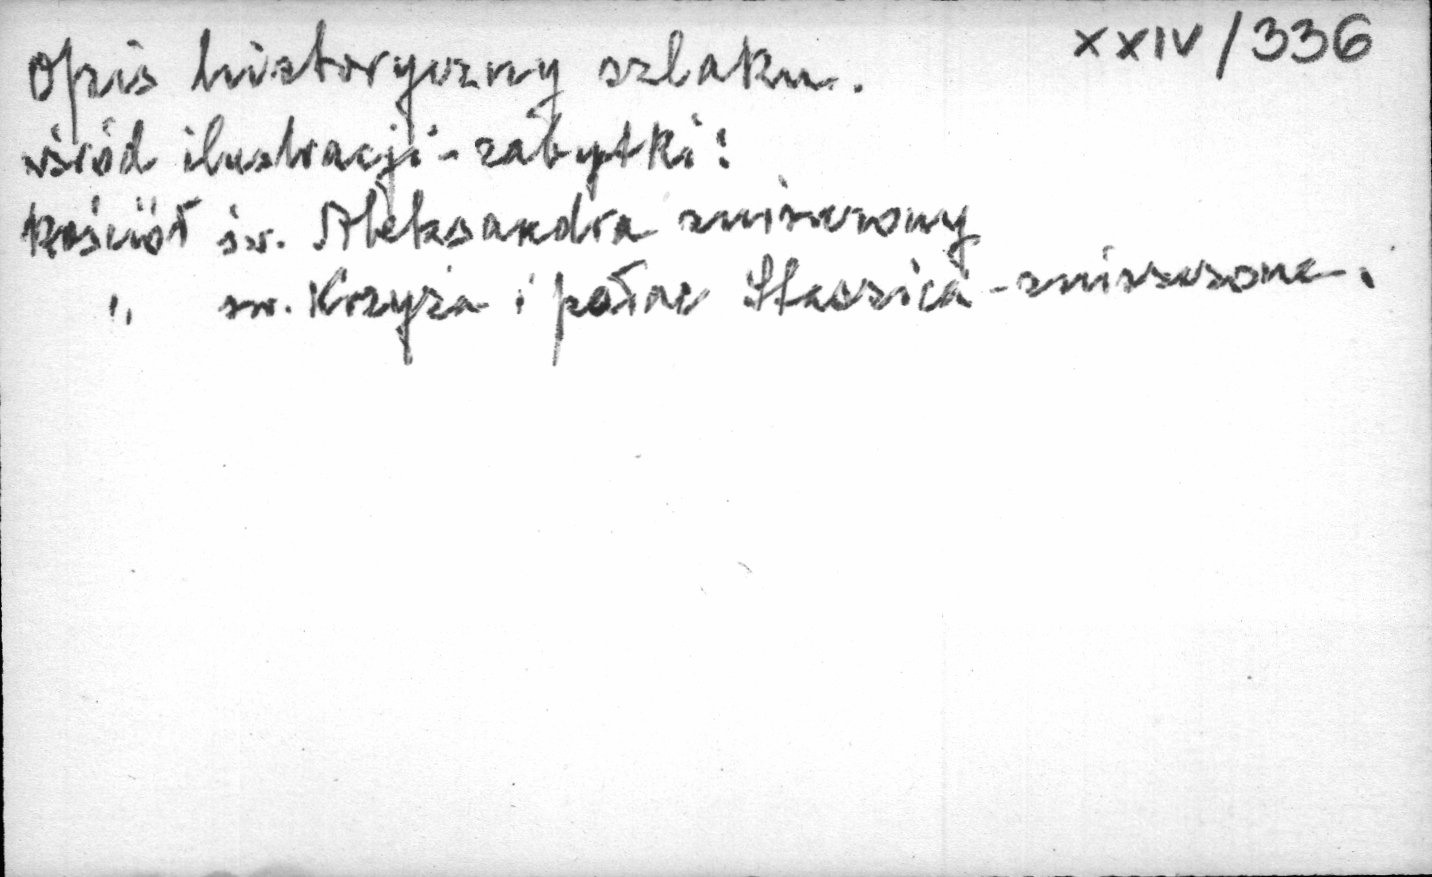 XXIV/336
Opis historyczny szlaku.
wśród ilustracji - zabytki:
kościół św. Aleksandra zniszczony
" św. Krzyża i pałac Staszica - zniszczone.